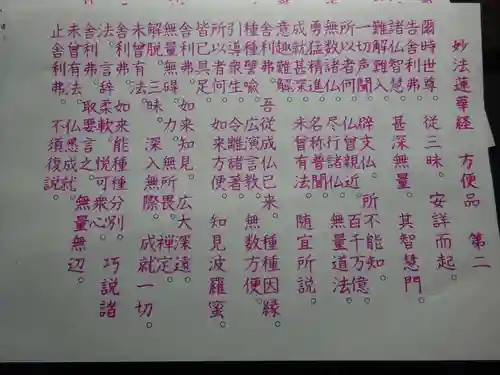 妙法蓮華經 方便品 第二
爾時世尊。從三昧。安詳而起。
告舍利弗。
諸仏智慧。甚深無量。其智慧門。
難解難入。
一切聲聞。辟支仏。所不能知。
所以者何。仏曾親近。百千萬億
無數諸仏。盡行諸仏。無量道法。
勇猛精進。名稱普聞。
成就甚深。未曾有法。隨宜所說。
意趣難解。
舍利弗。吾從成仏已來。種種因緣。
種種譬喻。廣演言教。無數方便。
引導衆生。令離諸著。
所以者何。如來方便。知見波羅蜜。
皆已具足。
舍利弗。如來知見。廣大深遠。
無量無碍。力。無所畏。禪定。
解脫三昧。深入無際。成就一切。
未曾有法。
舍利弗。如來能種種分別。巧說諸
法。言辭柔軟。悅可衆心。
舍利弗。取要言之。無量無邊。
未曾有法。仏悉成就。
止舍利弗。不須復說。